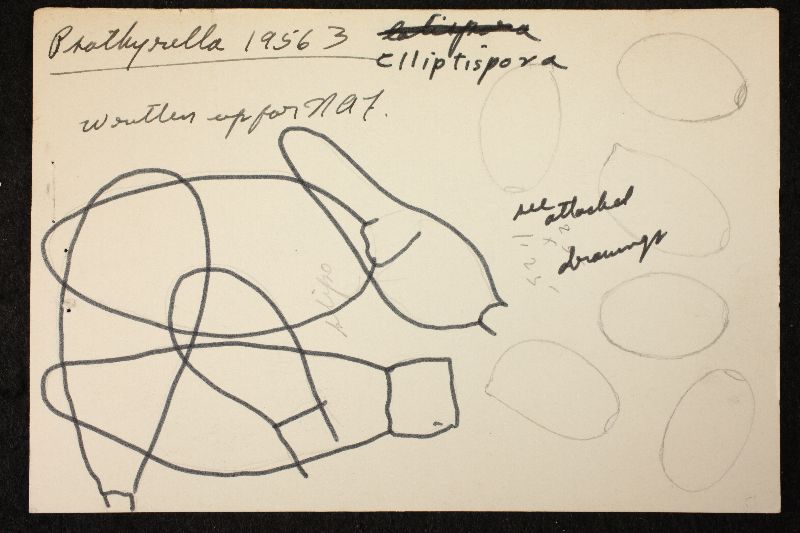 Psathyrella 1956 3 latispora
Elliptispora
written up for NAF.
see attached
drawings